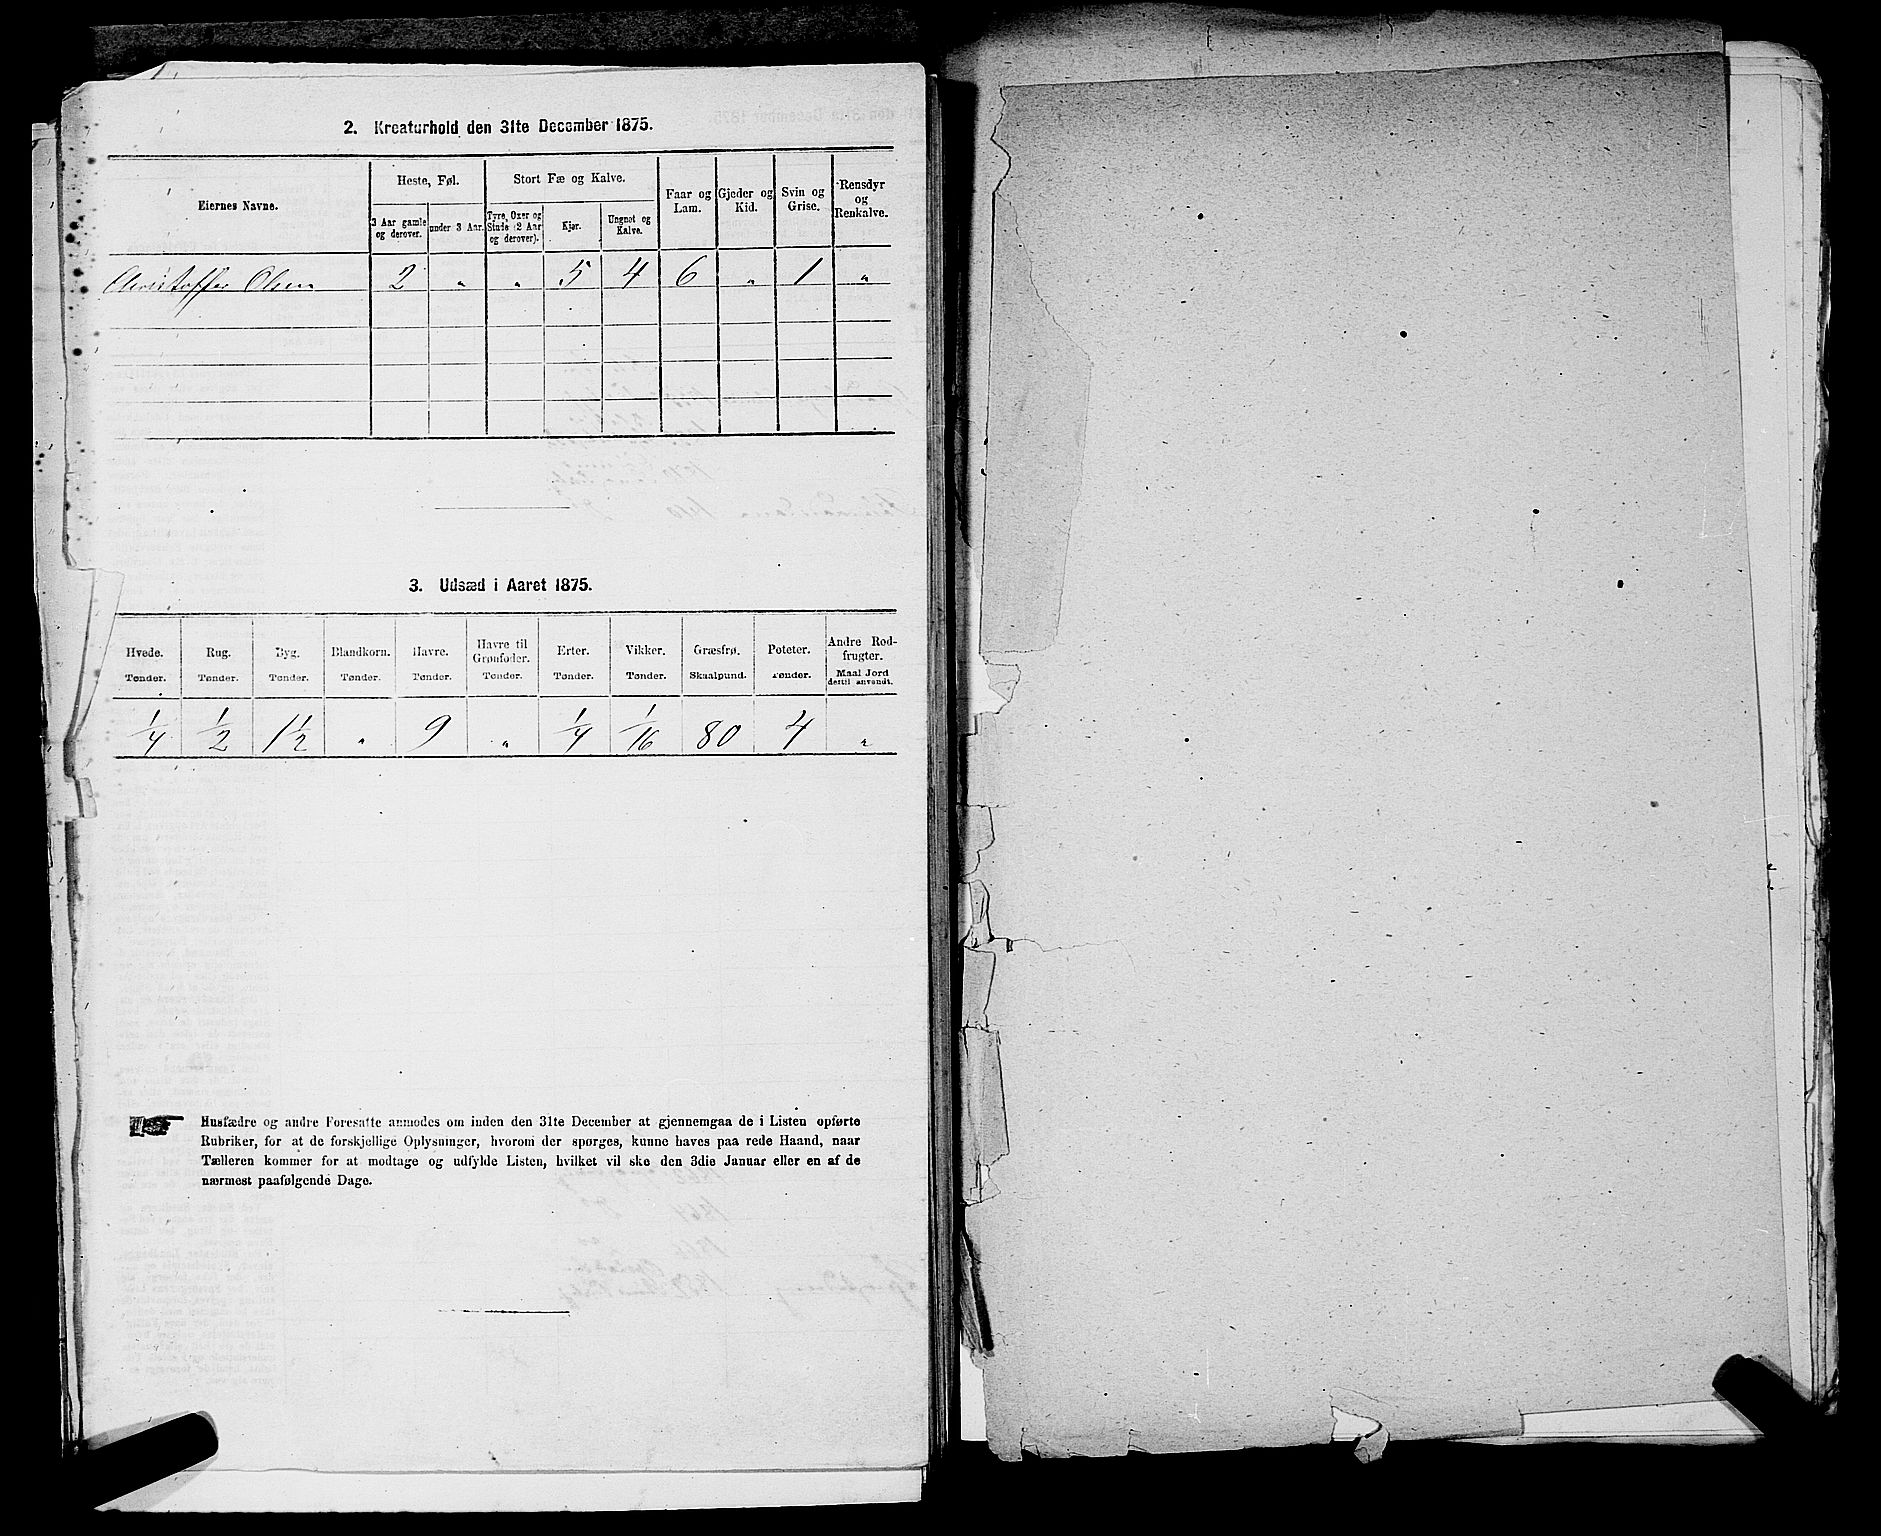 2. Kreaturhold den 31te December 1875.
Eiernes Navne. | Heste, Føl. | Stort Fæ og Kalve. | Faar og Lam. | Gjeder og Kid. | Svin og Grise. | Rensdyr og Renkalve.
3 Aar gamle og derover. | under 3 Aar. | Tyre, Oxer og Stude (2 Aar og derover). | Kjør. | Ungnøt og Kalve.
Christoffer Olsen | 2 | " | " | 5 | 4 | 6 | " | 1 | "
3. Udsæd i Aaret 1875.
Hvede. | Rug. | Byg. | Blandkorn. | Havre. | Havre til Grønfoder. | Erter. | Vikker. | Græsfrø. | Poteter. | Andre Rodfrugter.
Tønder. | Tønder. | Tønder. | Tønder. | Tønder. | Tønder. | Tønder. | Tønder. | Skaalpund. | Tønder. | Maal Jord dertil anvendt.
1/4 | 1/2 | 1 1/2 | " | 9 | " | 1/4 | 1/16 | 80 | 4 | "
Husfædre og andre Foresatte anmodes om inden den 31te December at gjennemgaa de i Listen opførte
Rubriker, for at de forskjellige Oplysninger, hvorom der spørges, kunne haves paa rede Haand, naar
Tælleren kommer for at modtage og udfylde Listen, hvilket vil ske den 3die Januar eller en af de
nærmest paafølgende Dage.